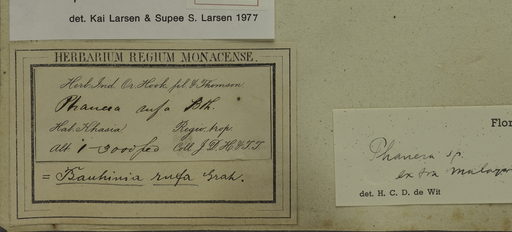 det. Kai Larsen & Supee S. Larsen 1977
HERBARIUM REGIUM MONACENSE.
Herb. Ind. Or. Hook. fil. & Thomson
Phanera rufa Bth.
Hab. Khasia Regio. trop.
alt. 1-3000 ped Coll. J. D. H. & T. T.
= Bauhinia rufa Grah.
Flor
Phanera sp.
det. H. C. D. de Wit